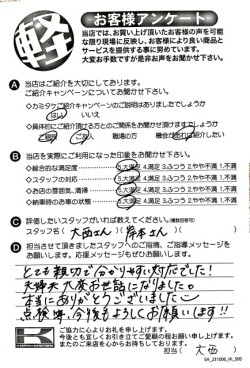 軽
お客様アンケート
当店では、お買い上げ頂いたお客様の声を可能
な限り現場に反映し、お客様により良い商品と
サービスを提供する事に努めています。
大変お手数ですが是非お声をお聞かせ下さい。
A 当店はご紹介を大切にしてあります。
ご紹介キャンペーンについてお聞かせ下さい。
◇カミタケご紹介キャンペーンのご説明はありましたでしょうか
はい いいえ
◇具体的にご紹介頂ける方とのご関係をお聞かせ頂けますでしょうか
ご親戚 ご友人 職場の方 機会があれば紹介したい
B 当店を実際にご利用になった印象をお聞かせ下さい。
◇総合的な満足度 5.大満足 4.満足 3.ふつう 2.やや不満 1.不満
◇スタッフの対応 5.大満足 4.満足 3.ふつう 2.やや不満 1.不満
◇お店の雰囲気、清掃 5.大満足 4.満足 3.ふつう 2.やや不満 1.不満
◇納車時のお車の状態 5.大満足 4.満足 3.ふつう 2.やや不満 1.不満
C 評価したいスタッフがいれば教えてください。(複数回答可)
スタッフ名( 大西さん )( 岸本さん )
D 担当させて頂きましたスタッフへのご指摘、ご指導メッセージを
お願いします。応援メッセージもぜひお願いします。
とても親切で分かりやすい対応でした!
夫婦共大変お世話になりました。
本当にありがとうございました
点検等、今後もよろしくお願いします!!
ご協力に心よりお礼を申し上げます。
今後とも宜しくお引き立てご愛顧の程お願い申し上げます。
またのご来店を心からお待ちしております。
担当( 大西 )
SH_231006_IK_500